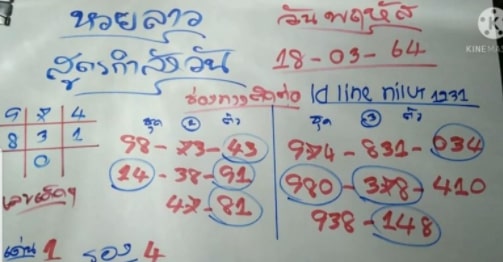 หวยลาว วันพฤหัส
สูตรกำลังวัน 18-03-64
KINEMA
ช่องทางติดต่อ Id line nilut 1231
9 7 4
8 3 1
0
ชุด ② ตัว
98-73-43
14-38-91
47-81
ชุด ③ ตัว
974-831-034
980-378-410
938-148
เลขเด็ดๆ
เด่น 1 รอง 4